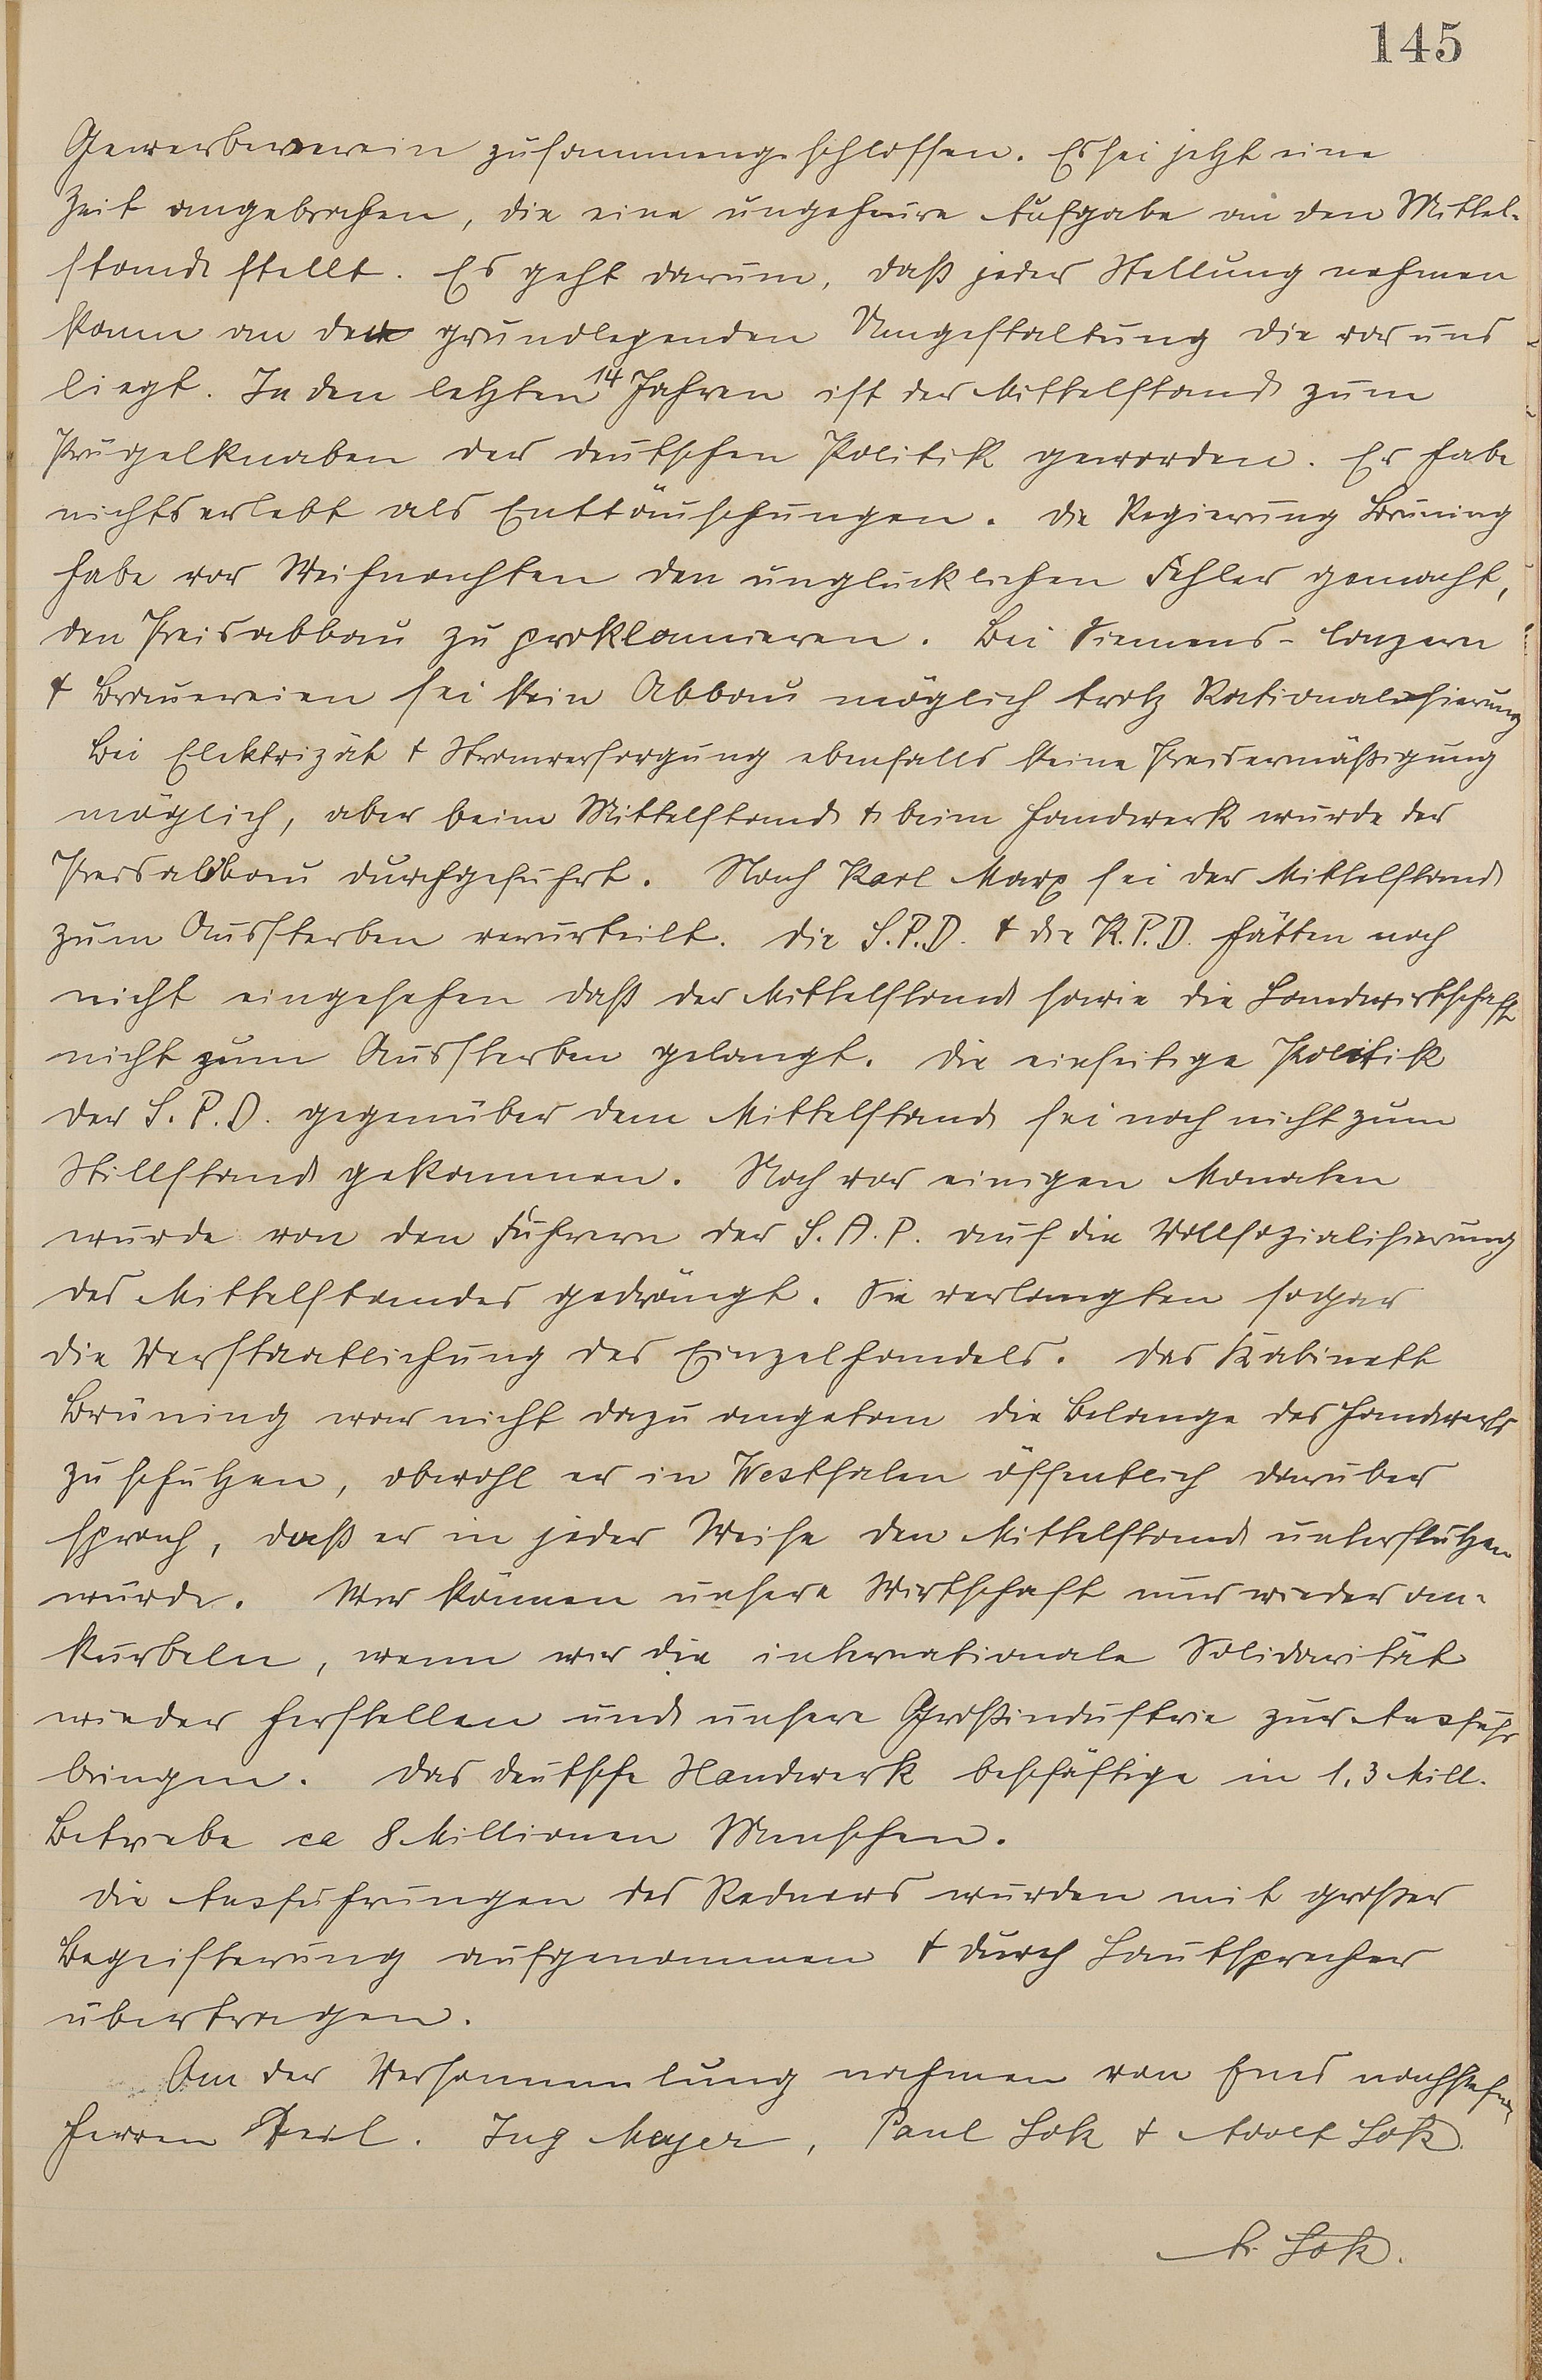 145
Gewerbeverein zusammengeschlossen. Es sei jetzt eine
Zeit angebrochen, die eine ungeheure Aufgabe an den Mittel-
stand stellt. Es geht darum, daß jeder Stellung nehmen
kann an der grundlegenden Umgestaltung die vor uns
liegt. In den letzten 14 Jahren ist der Mittelstand zum
Prügelknaben der deutschen Politik geworden. Er habe
nichts erlebt als Enttäuschungen. Die Regierung Brüning
habe vor Weihnachten den unglücklichen Fehler gemacht,
den Preisabbau zu proklamieren. Bei Siemens-Conzern
& Brauereien sei kein Abbau möglich trotz Rationalisierung
Bei Elektrizät & Stromversorgung ebenfalls keine Preisermäßigung
möglich, aber beim Mittelstand & beim Handwerk wurde der
Preisabbau durchgeführt. Nach Karl Marx sei der Mittelstand
zum Aussterben verurteilt. Die S.P.D. & die K.P.D. hätten noch
nicht eingesehen daß der Mittelstand sowie die Landwirtschaft
nicht zum Aussterben gelangt. Die einseitige Politik
der S.P.D. gegenüber dem Mittelstand sei noch nicht zum
Stillstand gekommen. Noch vor einigen Monaten
wurde von den Führern der S.A.P. auf die Vollsozialisierung
des Mittelstandes gedrängt. Sie verlangten sogar
die Verstaatlichung des Einzelhandels. Das Kabinett
Brüning war nicht dazu angetan die Belange des Handwerks
zu schützen, obwohl er in Westfalen öffentlich darüber
sprach, daß er in jeder Weise den Mittelstand unterstützen
würde. Wir können unsere Wirtschaft nur wieder an-
kurbeln, wenn wir die internationale Solidarität
wieder herstellen und unsere Großindustrie zur Ausfuhr
bringen. Das deutsche Handwerk beschäftige in 1,3 Mill.
Betriebe ca 8 Millionen Menschen.
Die Ausführungen des Redners wurden mit großer
Begeisterung aufgenommen & durch Lautsprecher
übertragen.
An der Versammlung nahmen von hier nachstehen
Herren teil. Ing Meyer, Paul Lok & Adolf Lok.
A. Lok.